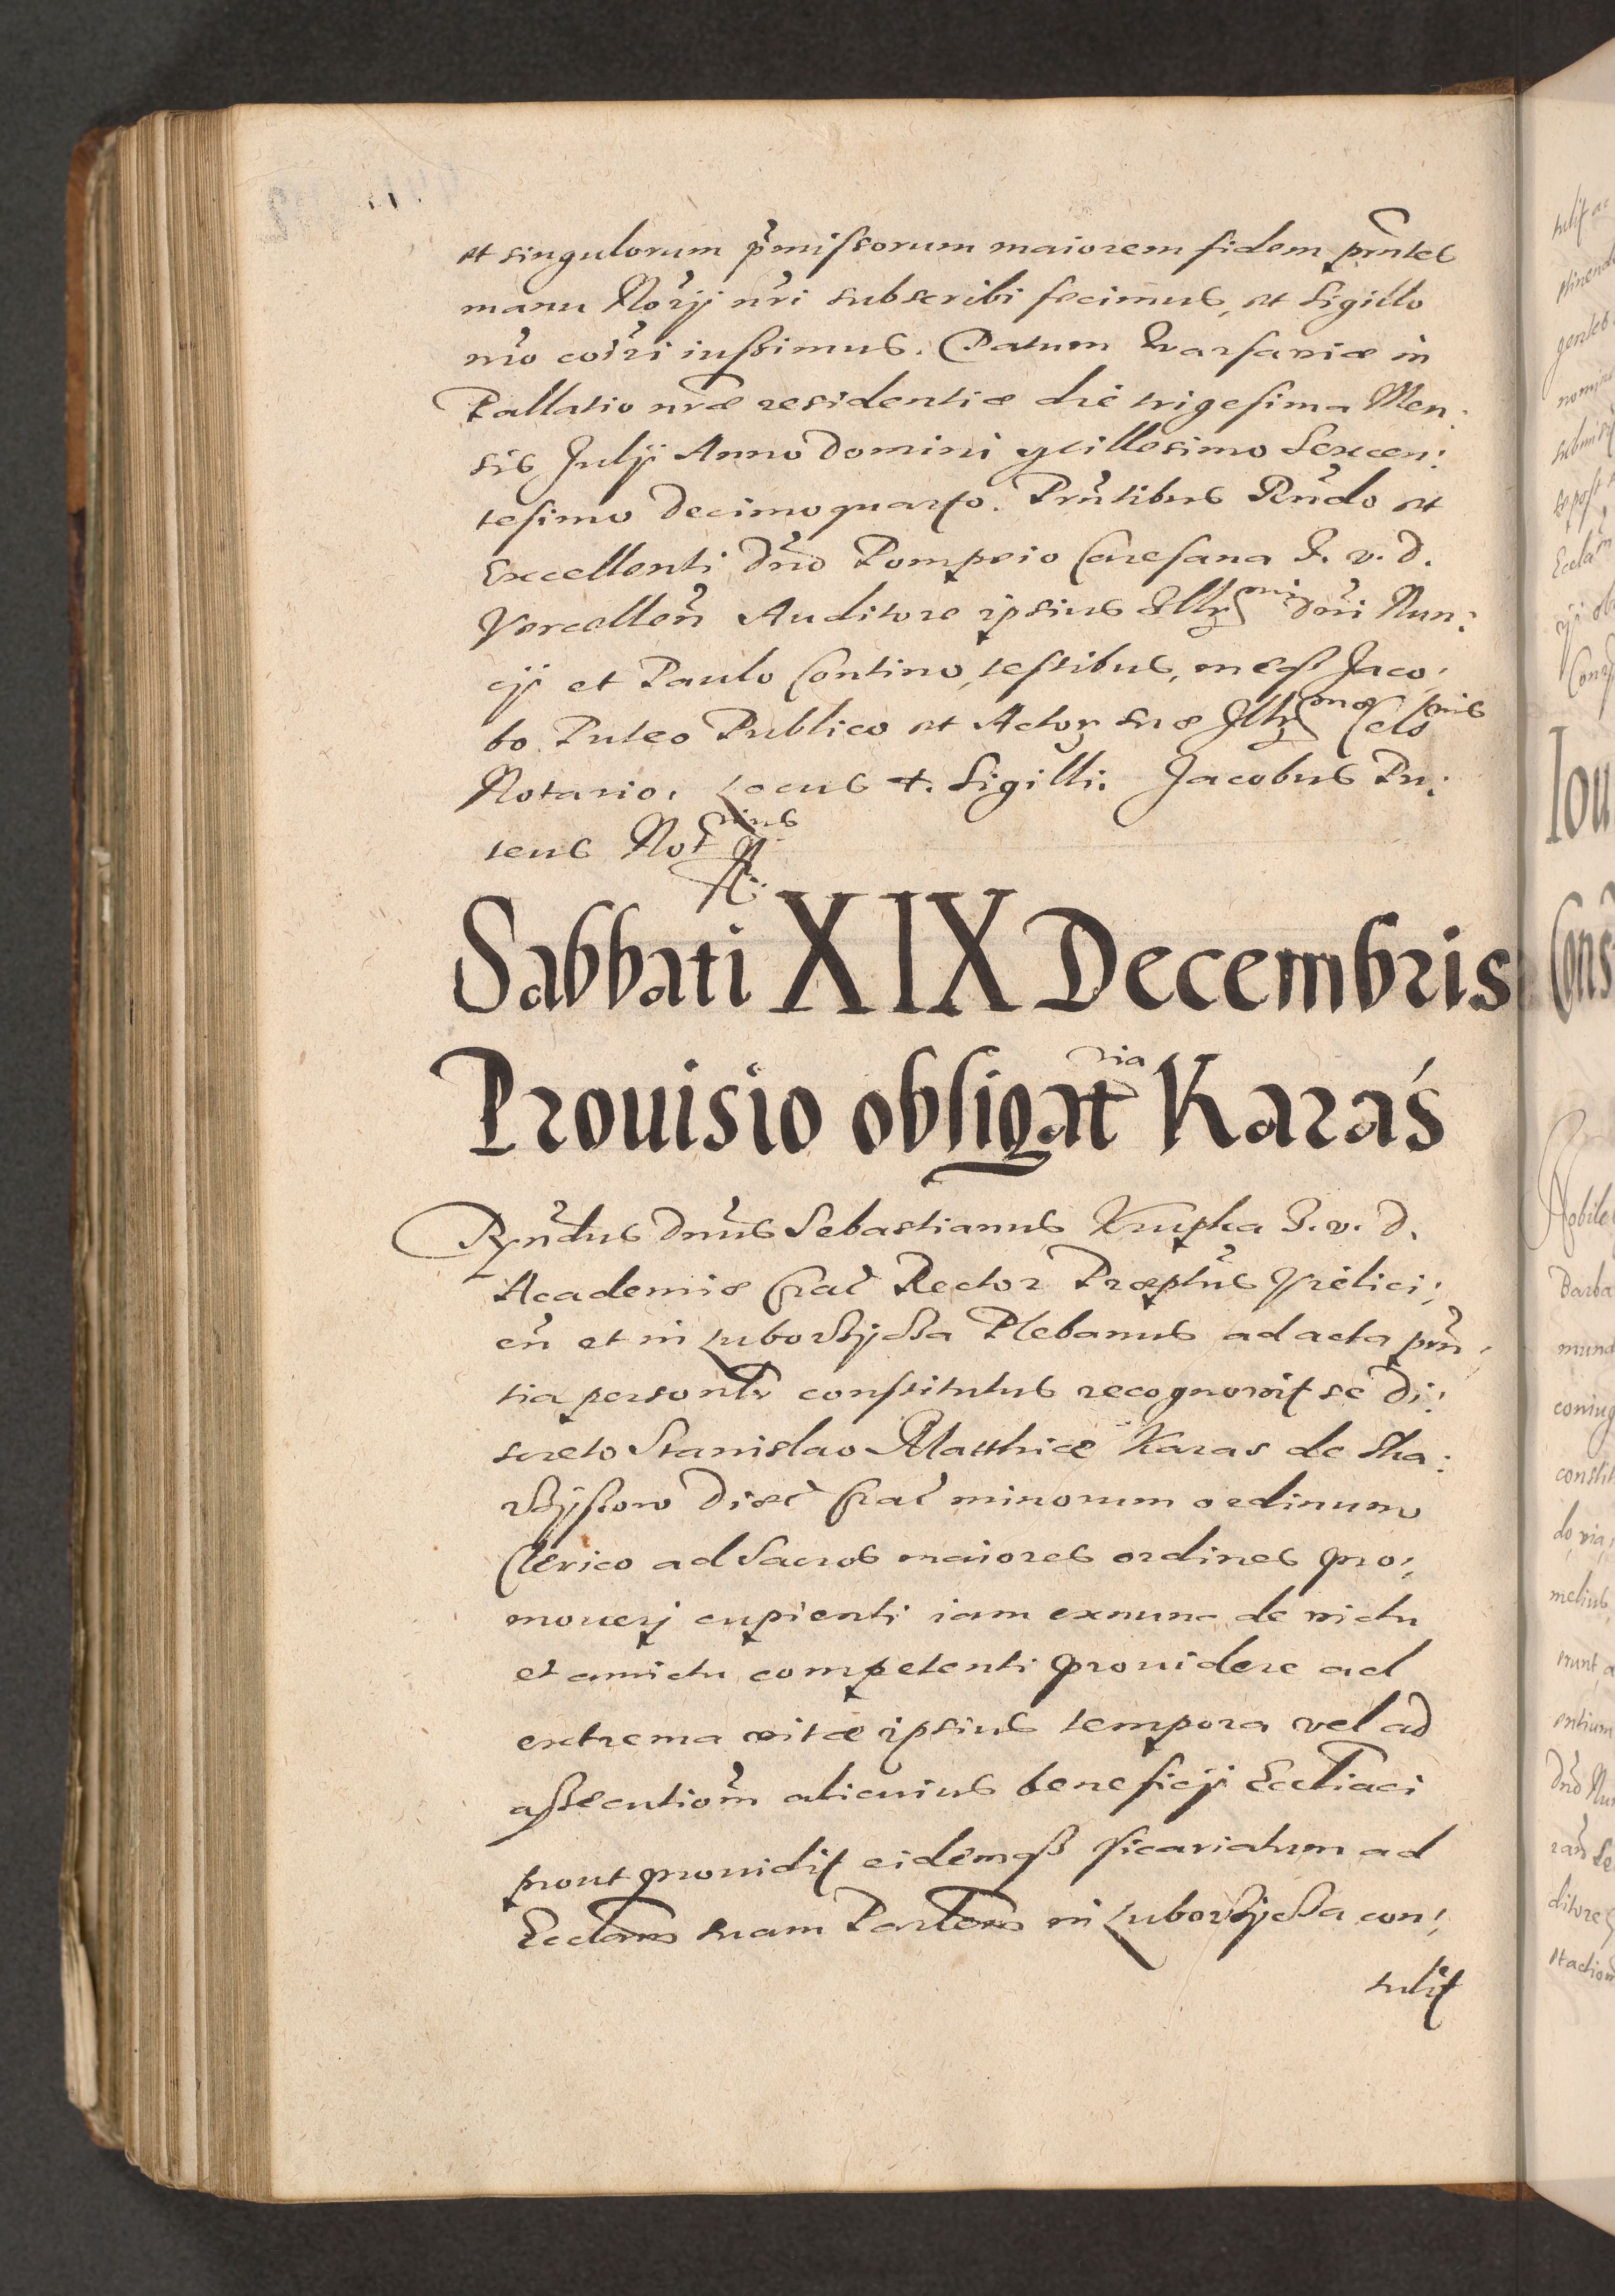 et singulorum p̃missorum maiorem fidem pñtes
manu Nořij ñri subscribi fecimus, et Sigillo
ñro coĩri iussimus. Datum Warsaviæ in
Pallatio ñræ residentiæ die trigesima Men:
sis Julij Anno Domini Millesimo Sexcen:
tesimo Decimoquarto. Pñtibus Rñdo et
Excellenti Dño Pompeio Caresana I. v. d.
Vercelleñ Auditore ipsius Illr̃mi Dñi Nun:
cij et Paulo Contino, testibus, meqß Jaco:
bo Puteo Publico et Actoꝝ suæ Illr̃mæ Cels̃nis
Notario. Locus +. Sigilli. Jacobus Pu:
teus Not̃rius
Sabbati XIX Decembris
Prouisio obligat̃ria Karaś
Rṽndus Dñus Sebastianus Krupka I. v. d.
Academiæ Crac̃ Rector Præpt̃us Vielici:
eñ et in Luborzÿcza Plebanus ad acta pñ:
tia personlr constitutus recognovit se Di:
screto Stanislao Matthiæ Karas de Ska:
rzÿszow Diæc̃ Crac̃ minorum ordinum
Clerico ad Sacros maiores ordines pro:
moverj cupienti iam exnunc de victu
et amictu competenti prouidere ad
extrema vitæ ipsius tempora vel ad
assecutiom̃ alicuius beneficij Ecclĩaci
prout prouidit eidemqß Vicariatum ad
Eccl̃am suam Par̃lem in Luborzÿcza con:
tulit